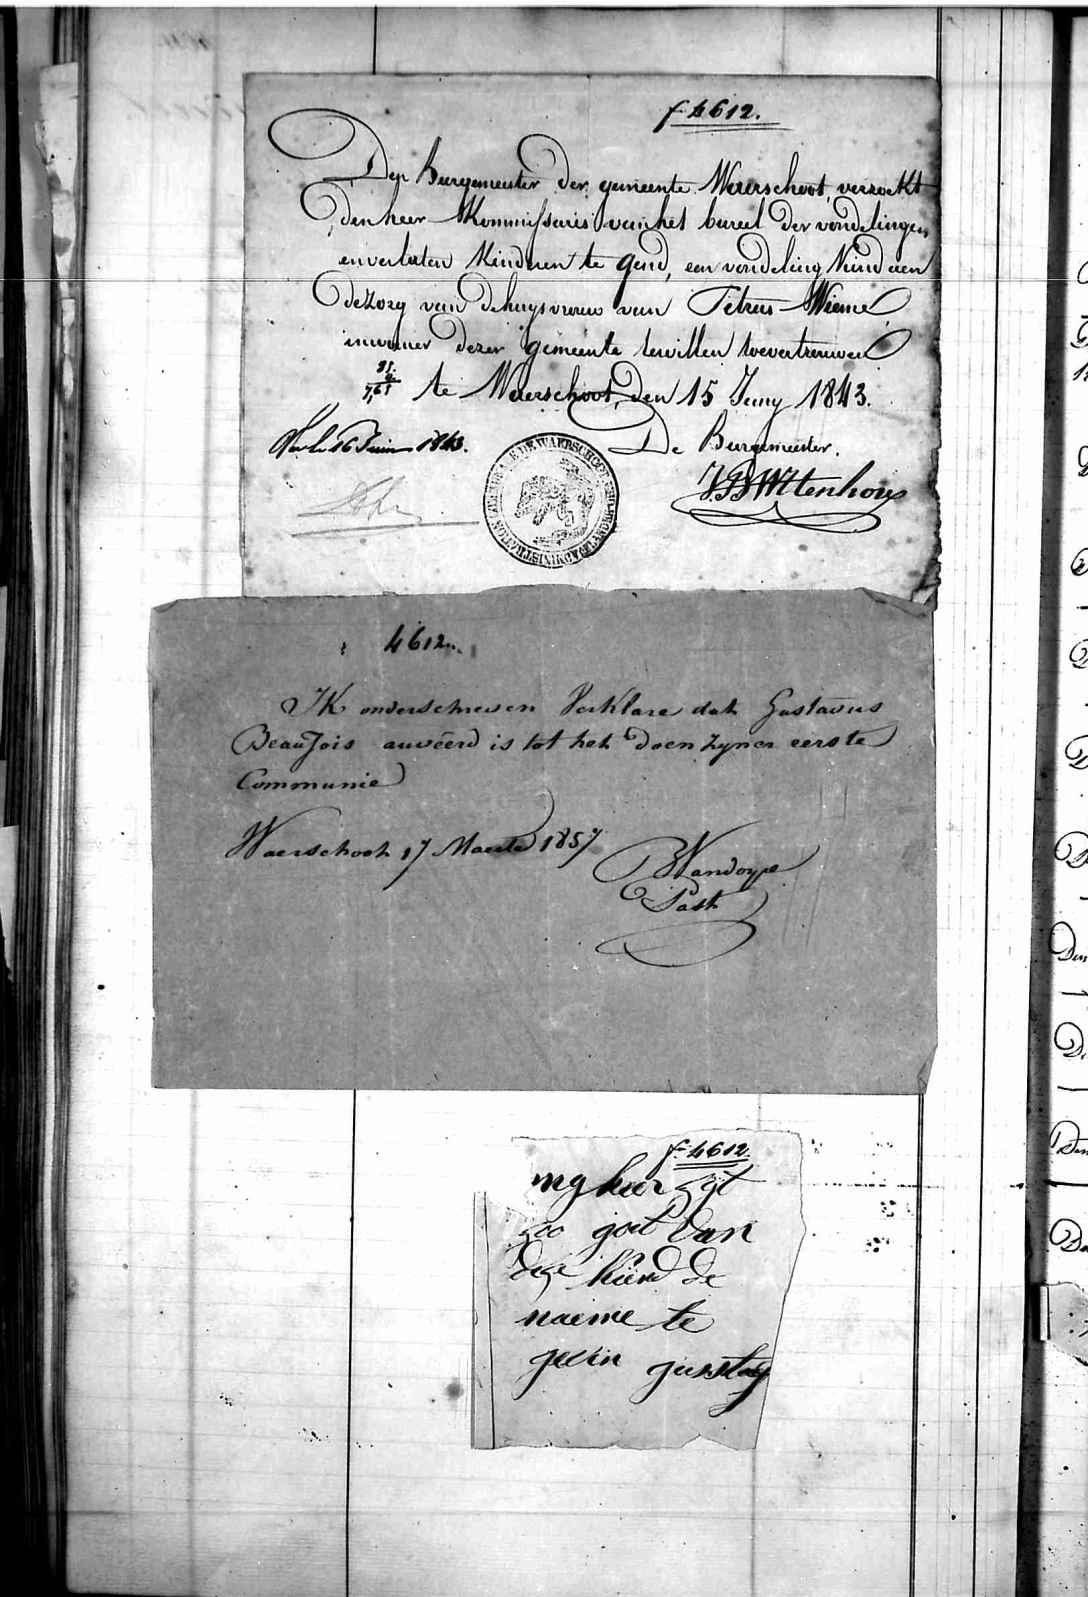 f 4612.
Den Burgemeester der gemeente Waerschoot, verzoekt
den heer Kommissaris van het bureel der vondelingen
en verlaten Kinderen te Gend, een vondeling Kind aen
de zorg van de huysvrouw van Petrus Wieme
inwoner dezer gemeente te willen toevertrouwen
te Waerschoot, den 15 Juny 1843.
16 Juin 1843.
De Burgemeester.
4612.
IK onderschreven Verklare dat Gustavus
BeauJois anveerd is tot het doen zyner eerste
Communie
Waerschoot 17 Maerte 1857
Past
f 4612.
myheer zyt
zoo goet van
dese kind de
naeme te
geven gustaf